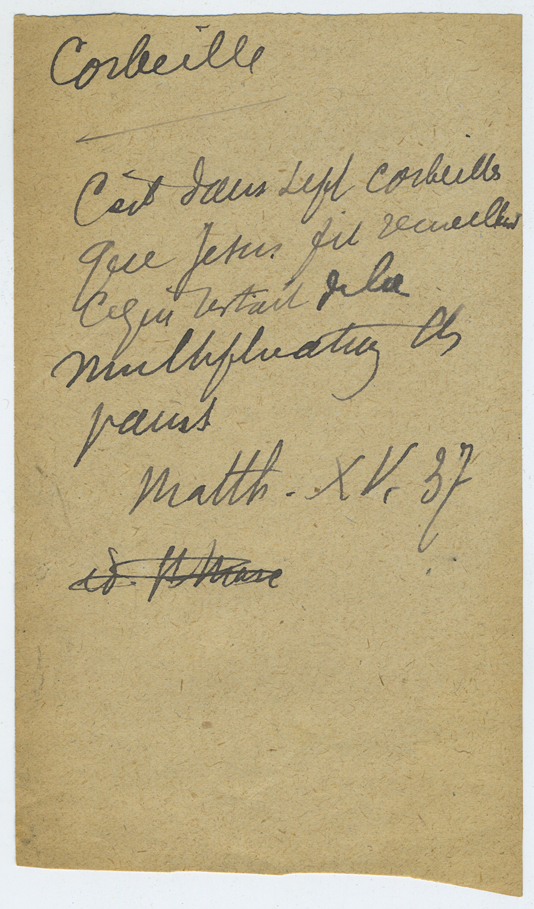 Corbeille
C'est dans sept corbeilles
que Jesus fit recueillir
ce qui restait de la
multiplication des
pains
Matth. XV, 37
id.